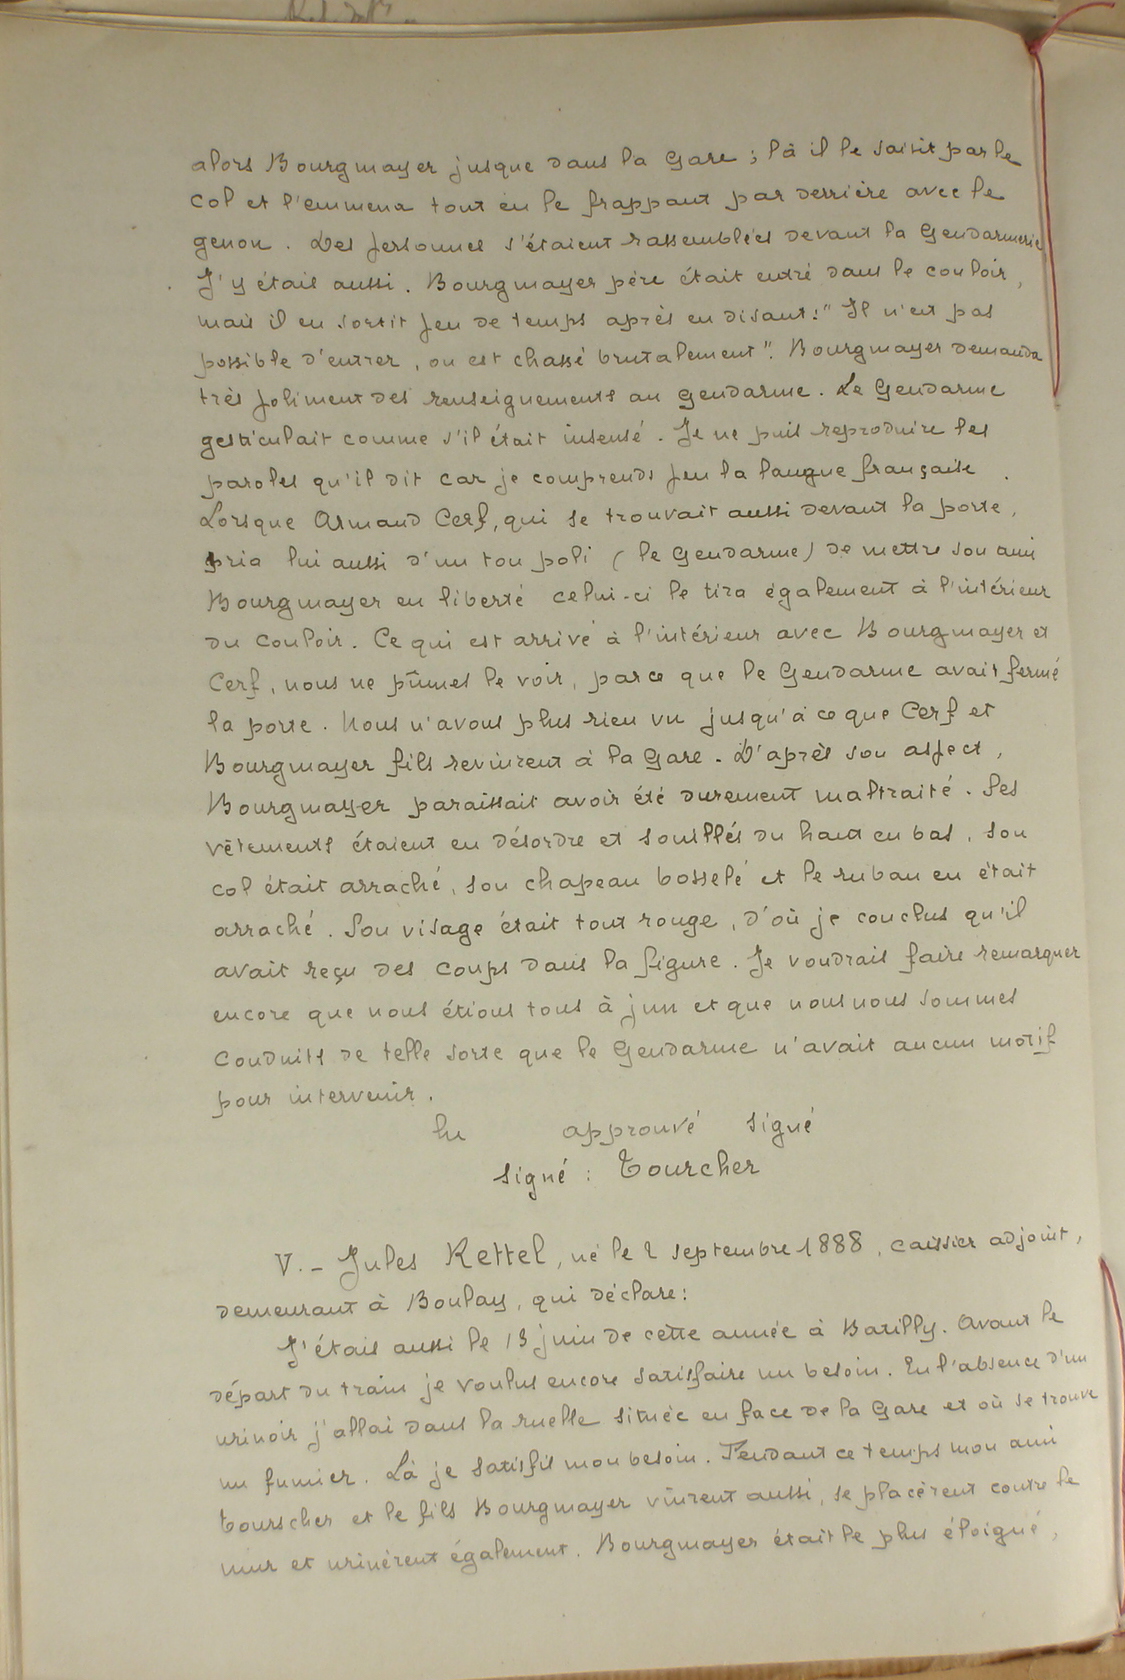 alors Bourgmayer jusque dans la Gare ; là il le saisit par le
col et l'emmena tout en le frappant par derrière avec le
genou . Des personnes s'étaient rassemblées devant la Gendarmerie
J'y étais aussi . Bourgmayer père était entré dans le couloir ,
mais il en sortit peu de temps après en disant : " Il n'est pas
possible d'entrer , on est chassé brutalement ". Bourgmayer demanda
très poliment des renseignements au gendarme . Le Gendarme
gesticulait comme s'il était insensé . Je ne puis reproduire les
paroles qu'il dit car je comprends peu la langue française .
Lorsque Armand Cerf, qui se trouvait aussi devant la porte ,
pria lui aussi d'un ton poli ( le Gendarme ) de mettre son ami
Bourgmayer en liberté celui-ci le tira également à l'intérieur
du couloir . Ce qui est arrivé à l'intérieur avec Bourgmayer et
Cerf , nous ne pûmes le voir , parce que le Gendarme avait fermé
la porte . Nous n'avons plus rien vu jusqu'à ce que Cerf et
Bourgmayer fils revinrent à la Gare . D'après son aspect ,
Bourgmayer paraissait avoir été durement maltraité . Ses
vêtements étaient en désordre et souillés du haut en bas , son
col était arraché , son chapeau bosselé et le ruban en était
arraché . Son visage était tout rouge , d'où je conclus qu'il
avait reçu des coups dans la figure . Je voudrais faire remarquer
encore que nous étions tous à jun et que nous nous sommes
conduits de telle sorte que le Gendarme n'avait aucun motif
pour intervenir .
lu approuvé signé
signé : Tourcher
V. - Jules Kettel , né le 2 septembre 1888 , caissier adjoint ,
demeurant à Boulay , qui déclare :
J'étais aussi le 13 juin de cette année à Batilly . Avant le
départ du train je voulus encore satisfaire un besoin . En l'absence d'un
urinoir j'allai dans la ruelle située en face de la Gare et où se trouve
un fumier . Là je satisfis mon besoin . Pendant ce temps mon ami
Tourscher et le fils Bourgmayer vinrent aussi , se placèrent contre le
mur et urinèrent également . Bourgmayer était le plus éloigné ,